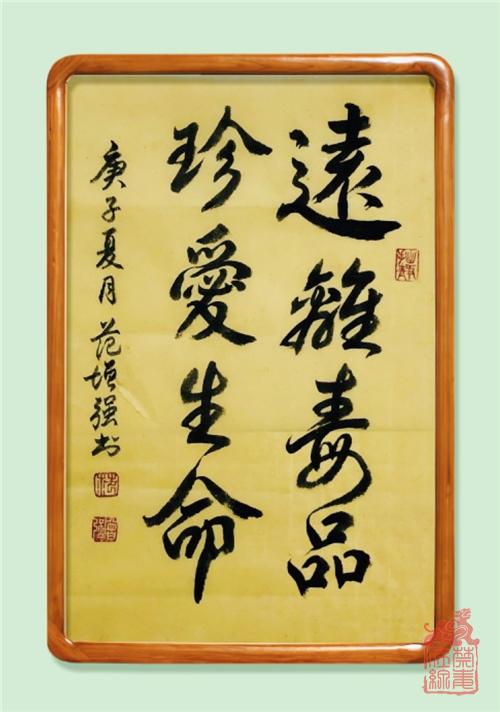 遠離毒品
珍愛生命
庚子夏月 范增强书